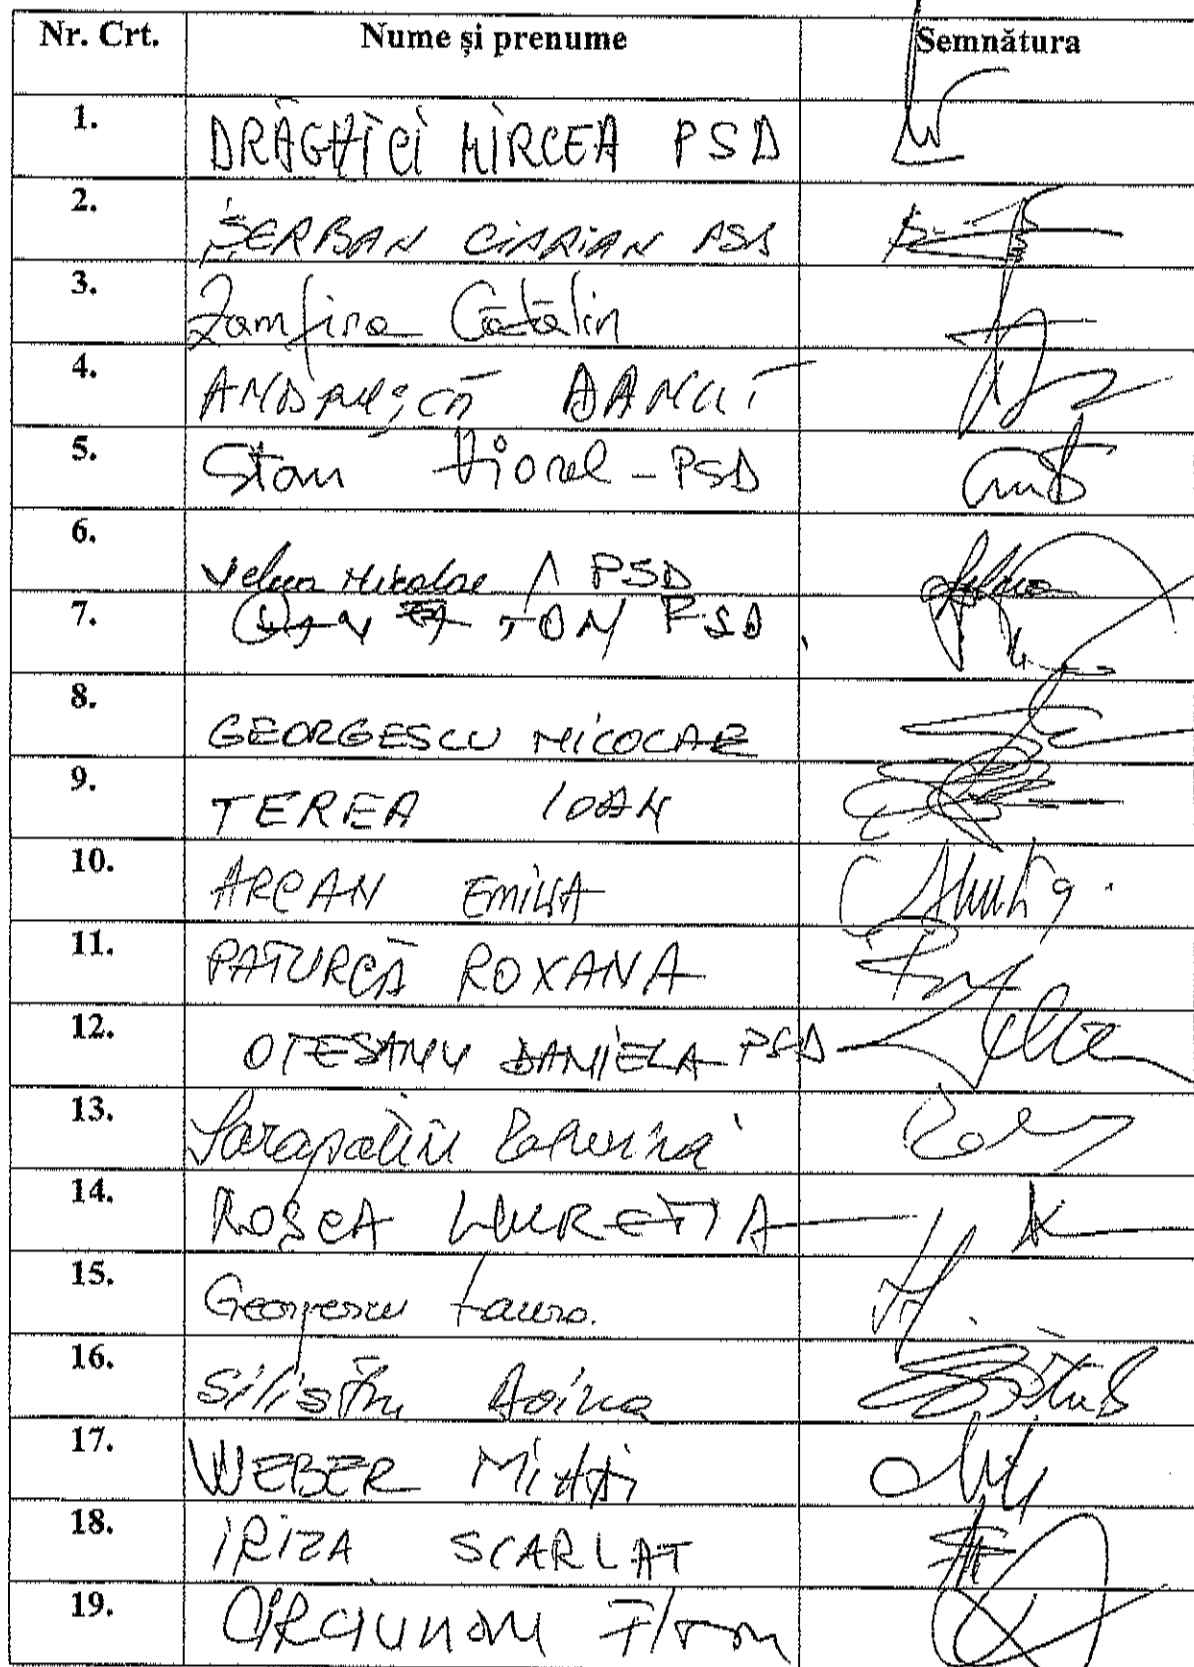 Nr. Crt. Nume și prenume Semnătura
1. DRĂGHICI MIRCEA PSD
2. ȘERBAN CIPRIAN PSD
3. Zamfira Cătălin
4. ANDRUȘCĂ DANUȚ
5. Stan Viorel - PSD
6. Velcea Nicolae PSD
7. ION PSD
8. GEORGESCU NICOLAE
9. TEREA IOAN
10. ARCAN EMILIA
11. PATURCĂ ROXANA
12. OTESANU DANIELA PSD
13.
14. ROȘCA LUCREȚIA
15. Georgescu Laura.
16. Silistru Doina
17. WEBER MIHAI
18. IRIZA SCARLAT
19. CÎRCIUMARU Florin